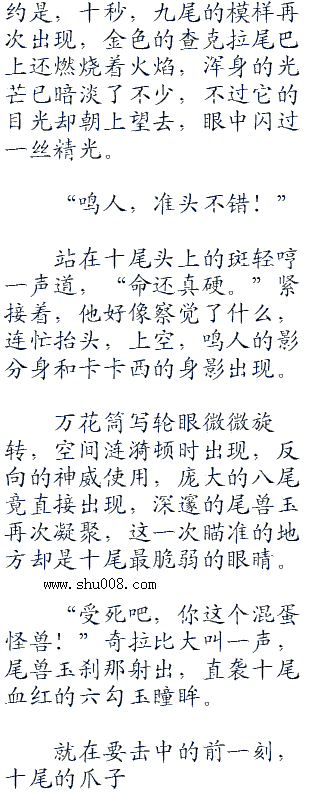 约是，十秒，九尾的模样再
次出现，金色的查克拉尾巴
上还燃烧着火焰，浑身的光
芒已暗淡了不少，不过它的
目光却朝上望去，眼中闪过
一丝精光。
“鸣人，准头不错！”
站在十尾头上的斑轻哼
一声道，“命还真硬。”紧
接着，他好像察觉了什么，
连忙抬头，上空，鸣人的影
分身和卡卡西的身影出现。
万花筒写轮眼微微旋
转，空间涟漪顿时出现，反
向的神威使用，庞大的八尾
竟直接出现，深邃的尾兽玉
再次凝聚，这一次瞄准的地
方却是十尾最脆弱的眼睛。
www.shu008.com
“受死吧，你这个混蛋
怪兽！”奇拉比大叫一声，
尾兽玉刹那射出，直袭十尾
血红的六勾玉瞳眸。
就在要击中的前一刻，
十尾的爪子